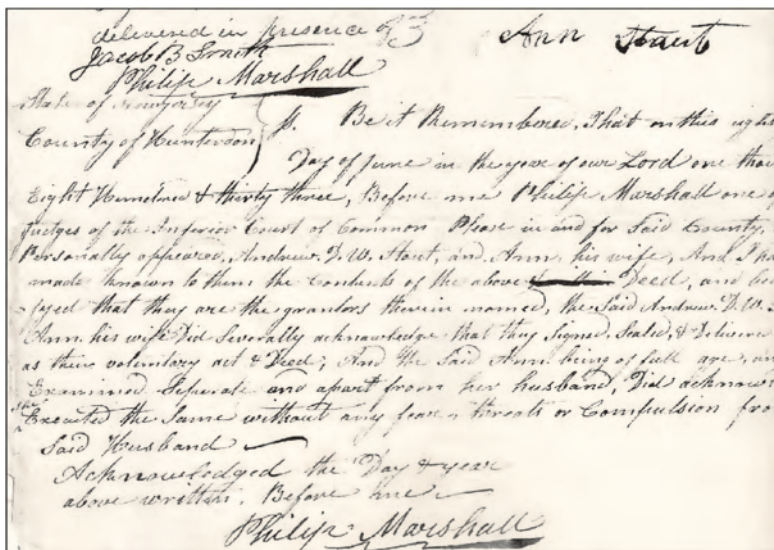 delivered in presence of
Jacob B Smith
Ann Stout
Philip Marshall
State of New Jersey
County of Hunterdon
ss. Be it Remembered, That on this eigh
Day of June in the year of our Lord one thou
Eight Hundred & thirty three, Before me Philip Marshall one o
judges of the Inferior Court of Common Pleas in and for Said County,
Personally appeared, Andrew. D. W. Stout, and Ann his wife, And I ha
made known to them the Contents of the above Deed, and be
fyed that they are the grantors therein named, the Said Andrew. D. W.
Ann. his wife Did Severally acknowledge that they Signed, Sealed, & Delivere
as their voluntary act & Deed; And the Said Ann being of full age, an
Examined Seperate and apart from her husband, Did acknow
she Executed the Same without any fear threats or Compulsion fro
Said Husband
Acknowledged the Day & year
above written. Before me
Philip Marshall